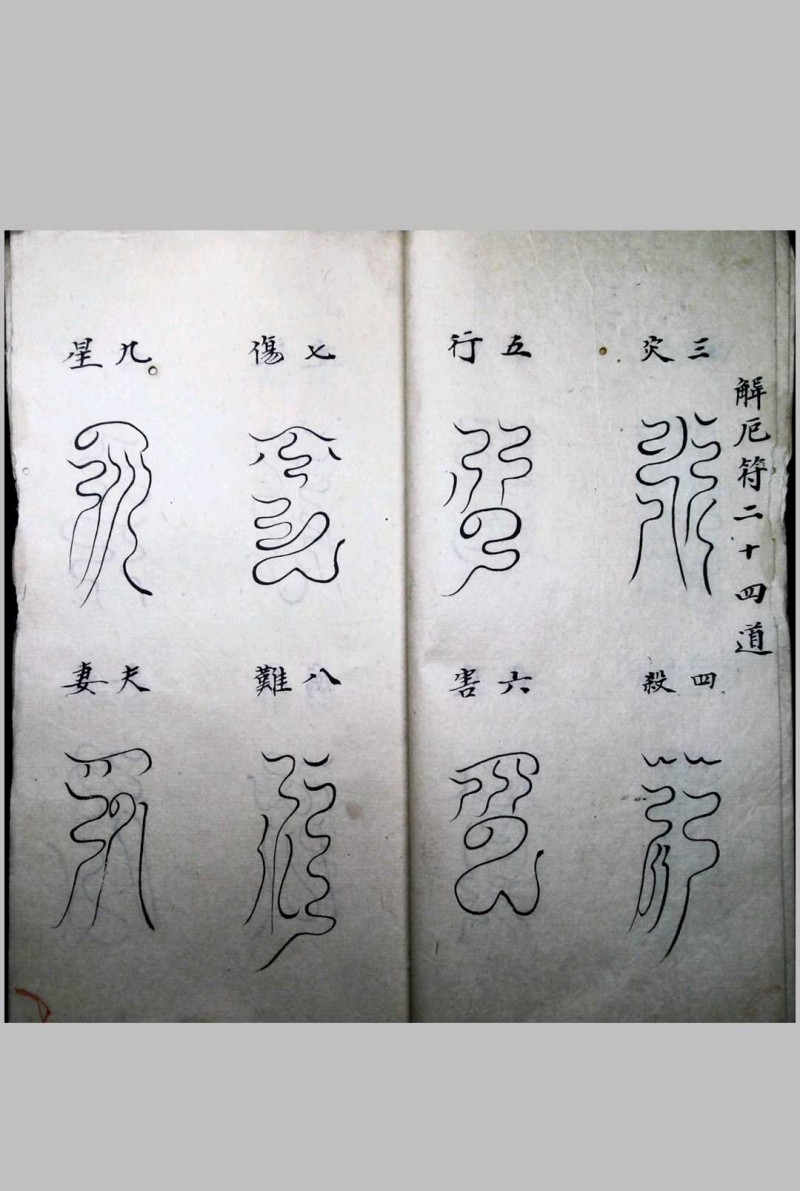 解厄符二十四道
三災
四殺
五行
六害
七傷
八難
九星
夫妻